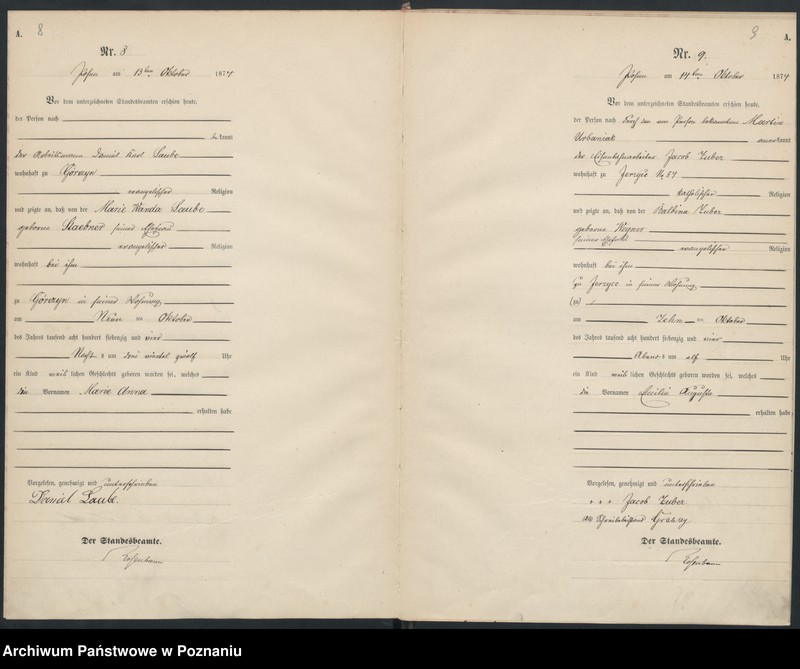 A. 8
Nr. 8
Posen am 13ten Oktober 1874
Vor dem unterzeichneten Standesbeamten erschien heute,
der Person nach
bekannt
der Arbeitsmann Daniel Karl Laube
wohnhaft zu Górczyn
evangelischer Religion
und zeigte an, daß von der Marie Wanda Laube
geborene Staebner seiner Ehefrau
evangelischer Religion
wohnhaft bei ihm
zu Górczyn in seiner Wohnung
am Neun ten Oktober
des Jahres tausend acht hundert siebenzig und vier
Nachts um drei viertel zwölf Uhr
ein Kind weiblichen Geschlechts geboren worden sei, welches
die Vornamen Marie Anna
erhalten habe
Vorgelesen, genehmigt und unterschrieben
Daniel Laube.
Der Standesbeamte.
9 A.
Nr. 9.
Posen am 14ten Oktober 1874
Vor dem unterzeichneten Standesbeamten erschien heute,
der Person nach durch den von Person bekannten Martin
Urbaniak anerkannt
der Jacob Zuber
wohnhaft zu Jerzyce No 57
katholischer Religion
und zeigte an, daß von der Balbina Zuber
geborene Wegner
seiner Ehefrau
evangelischer Religion
wohnhaft bei ihm
zu Jerzyce in seiner Wohnung
(zu)
am Zehn ten Oktober
des Jahres tausend acht hundert siebenzig und vier
Abends um elf Uhr
ein Kind weiblichen Geschlechts geboren worden sei, welches
die Vornamen Cecilie Auguste
erhalten habe
Vorgelesen, genehmigt und unterschrieben
+ + + Jacob Zuber
als Schreibbeistand
Der Standesbeamte.
Archiwum Państwowe w Poznaniu